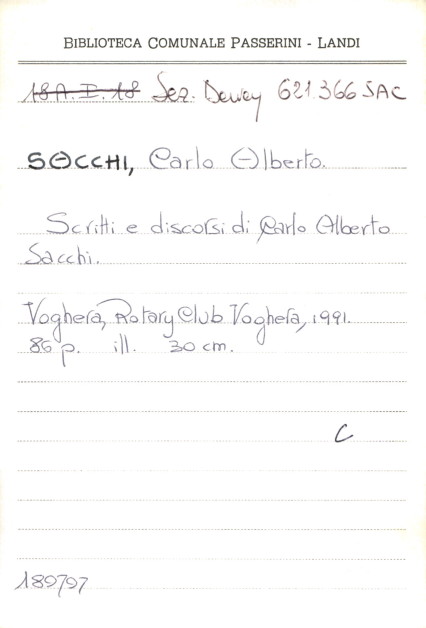 BIBLIOTECA COMUNALE PASSERINI - LANDI
18A.I.18 Sez. Dewey 621366 SAC
SACCHI, Carlo Alberto.
Scritti e discorsi di Carlo Alberto
Sacchi.
Voghera, Rotary Club Voghera, 1991.
86 p. ill. 30 cm.
C
1897/97